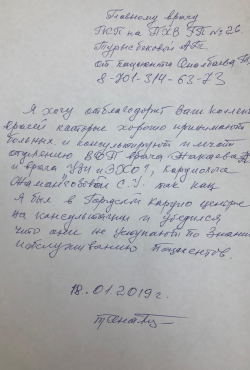 Главному врачу
ГКП на ПХВ ГП № 26
Турысбековой
от пациента Смагбаева
8-701-314-63-73
Я хочу отблагодорит Ваш коллек
врачей каторые хорошо принимают
больных и консультируют и лечат
отделению ВОП врача
и врача УЗИ и ЭХО 1, кардиолога
С.У. так как
я был в Городском кардио центре
на консультации и убедился
что они не уступают по знанию
и обслуживанию пациентов.
18.01.2019г.